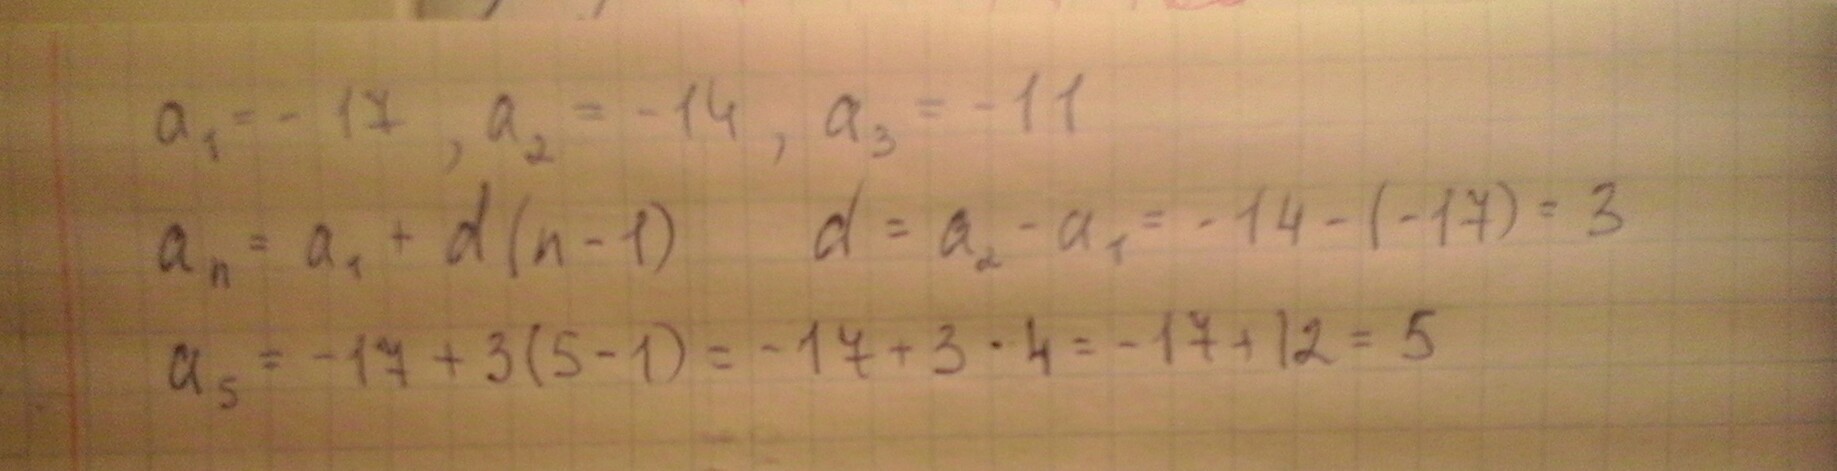 a₁ = - 17 , a₂ = -14 , a₃ = -11
aₙ = a₁ + d(n-1) d = a₂ - a₁ = -14-(-17) = 3
a₅ = -17 + 3(5-1) = -17+3·4 = -17+12 = 5